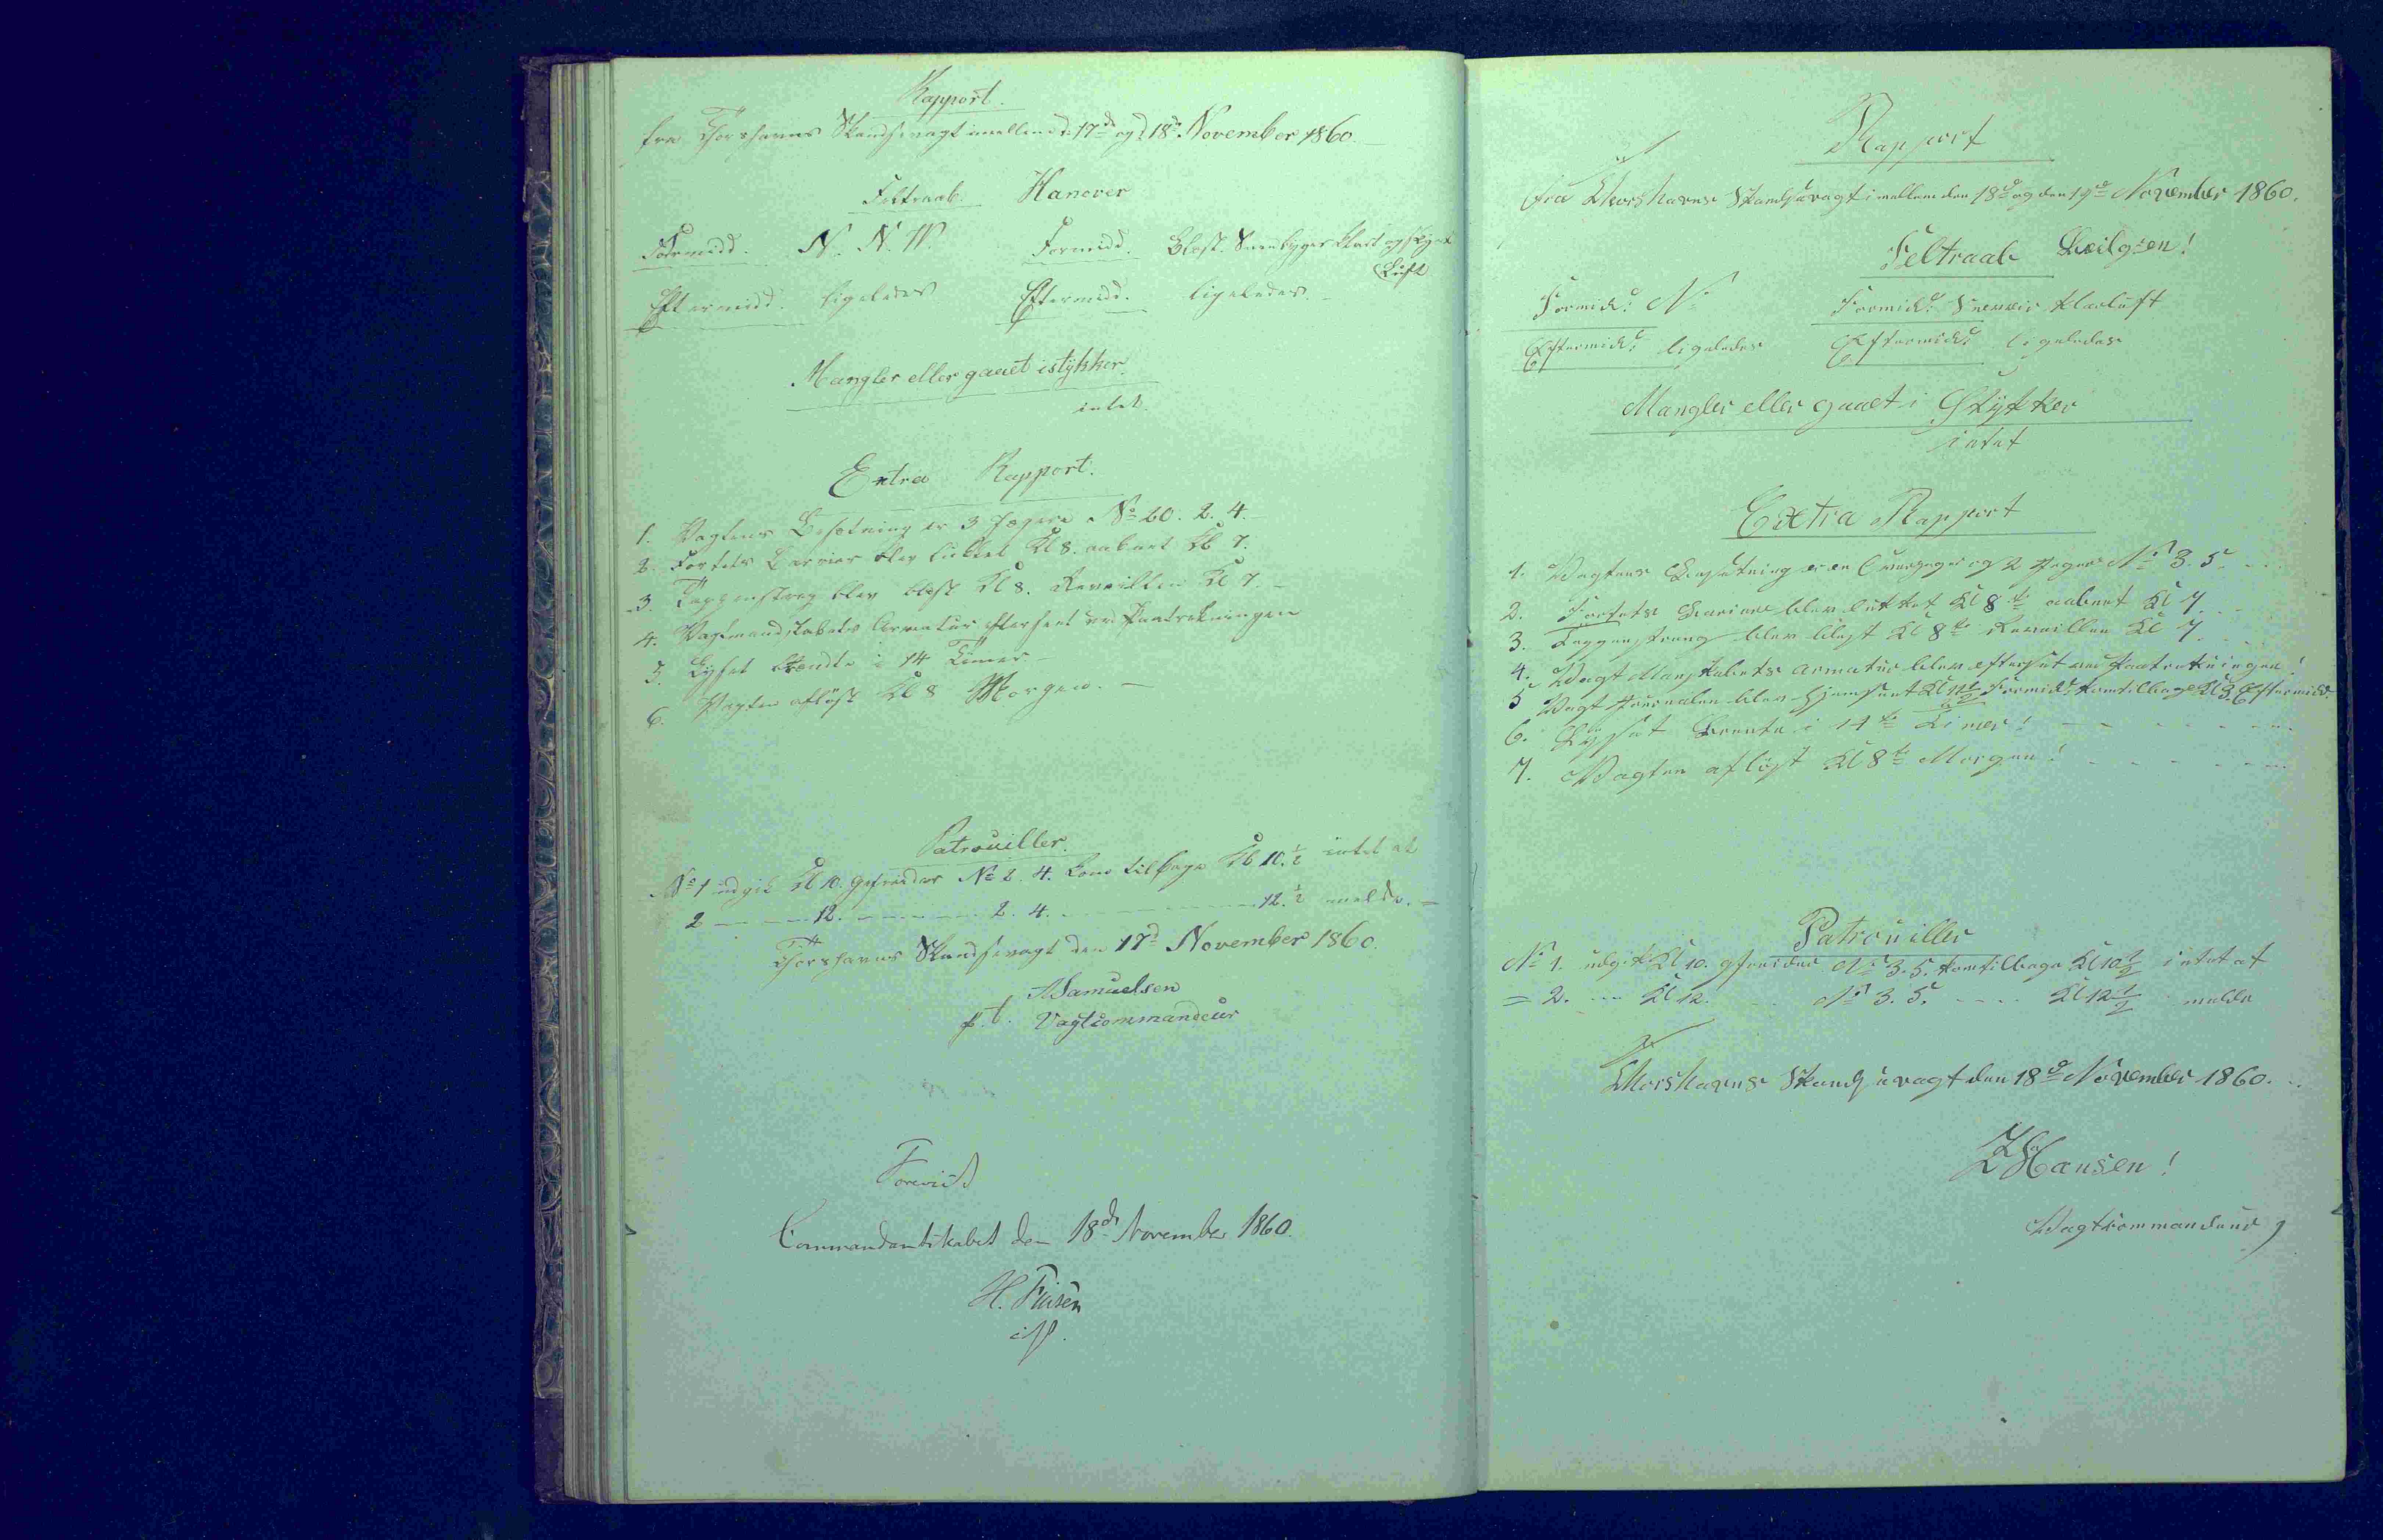 Rapport.
fra Thorshavns Skandsevagt imellem d: 17de og d: 18de November 1860.
Feltraab. Hanover
Formidd. N. N. W. Formidd. Blæst. Sneebyger klart og skyet
Luft
Eftermidd. ligeledes Eftermidd. ligeledes.
Mangler eller gaaet istykker.
intet.
Extra Rapport.
1. Vagtens Besætning er 3 Jægere No 20. 2. 4.
2. Fortets Barrier blev lukket Kl 8. aabnet Kl 7.
3. Tappenstreg blev blæst Kl 8. Reveillen Kl 7.
4. Vagtmandskabets Armatur efterseet ved Paatrækningen
5. Lyset brændte i 14 Timer.
6. Vagten afløst Kl 8 Morgen.
Patrouiller.
No 1 udgik Kl 10. Gefreider No 2. 4. kom tilbage Kl 10. 1/2 intet at
2 — — 12. — — 2. 4. — — 12. 1/2 melde.
Thorshavns Skandsevagt den 17d November 1860.
Samuelsen
p. t. Vagtcommandeur
Foreviist
Commandantskabet den 18de November 1860.
H. Finsen
Rapport
fra Thorshavns Skandsevagt imellem den 18de og den 19de November 1860.
Feltraab
Formidd: N. Formidd: Sneeveir klarluft
Eftermidd: ligeledes Eftermidd: ligeledes
Mangler eller gaaet i Stykker
intet
Extra Rapport
1. Vagtens Besætning er en Overjæger og 2 Jæger No 3. 5.
2. Fortets Bariere blev lukket Kl 8te aabnet Kl 7.
3. Tappenstræng blev blæst Kl 8te Reveillen Kl 7.
4. Vagt Manskabets Armatur blev efterset ved Paatrækningen!
5 Vagt Journalen blev hjemsent Kl 11 1/2 Formidd: kom tilbage Kl 3 Eftermidd:
6. Lysset brente i 14te Timer!
7. Vagten afløst Kl 8te Morgen!
Patrouiller
No 1. udgik Kl 10. gfreider No 3. 5. kom tilbage Kl 10 1/2 intet at
= 2. — Kl 12. — No 3. 5. — Kl 12 1/2 melde
Thorshavns Skandsevagt den 18de November 1860.
Hansen!
Vagtkommandeur